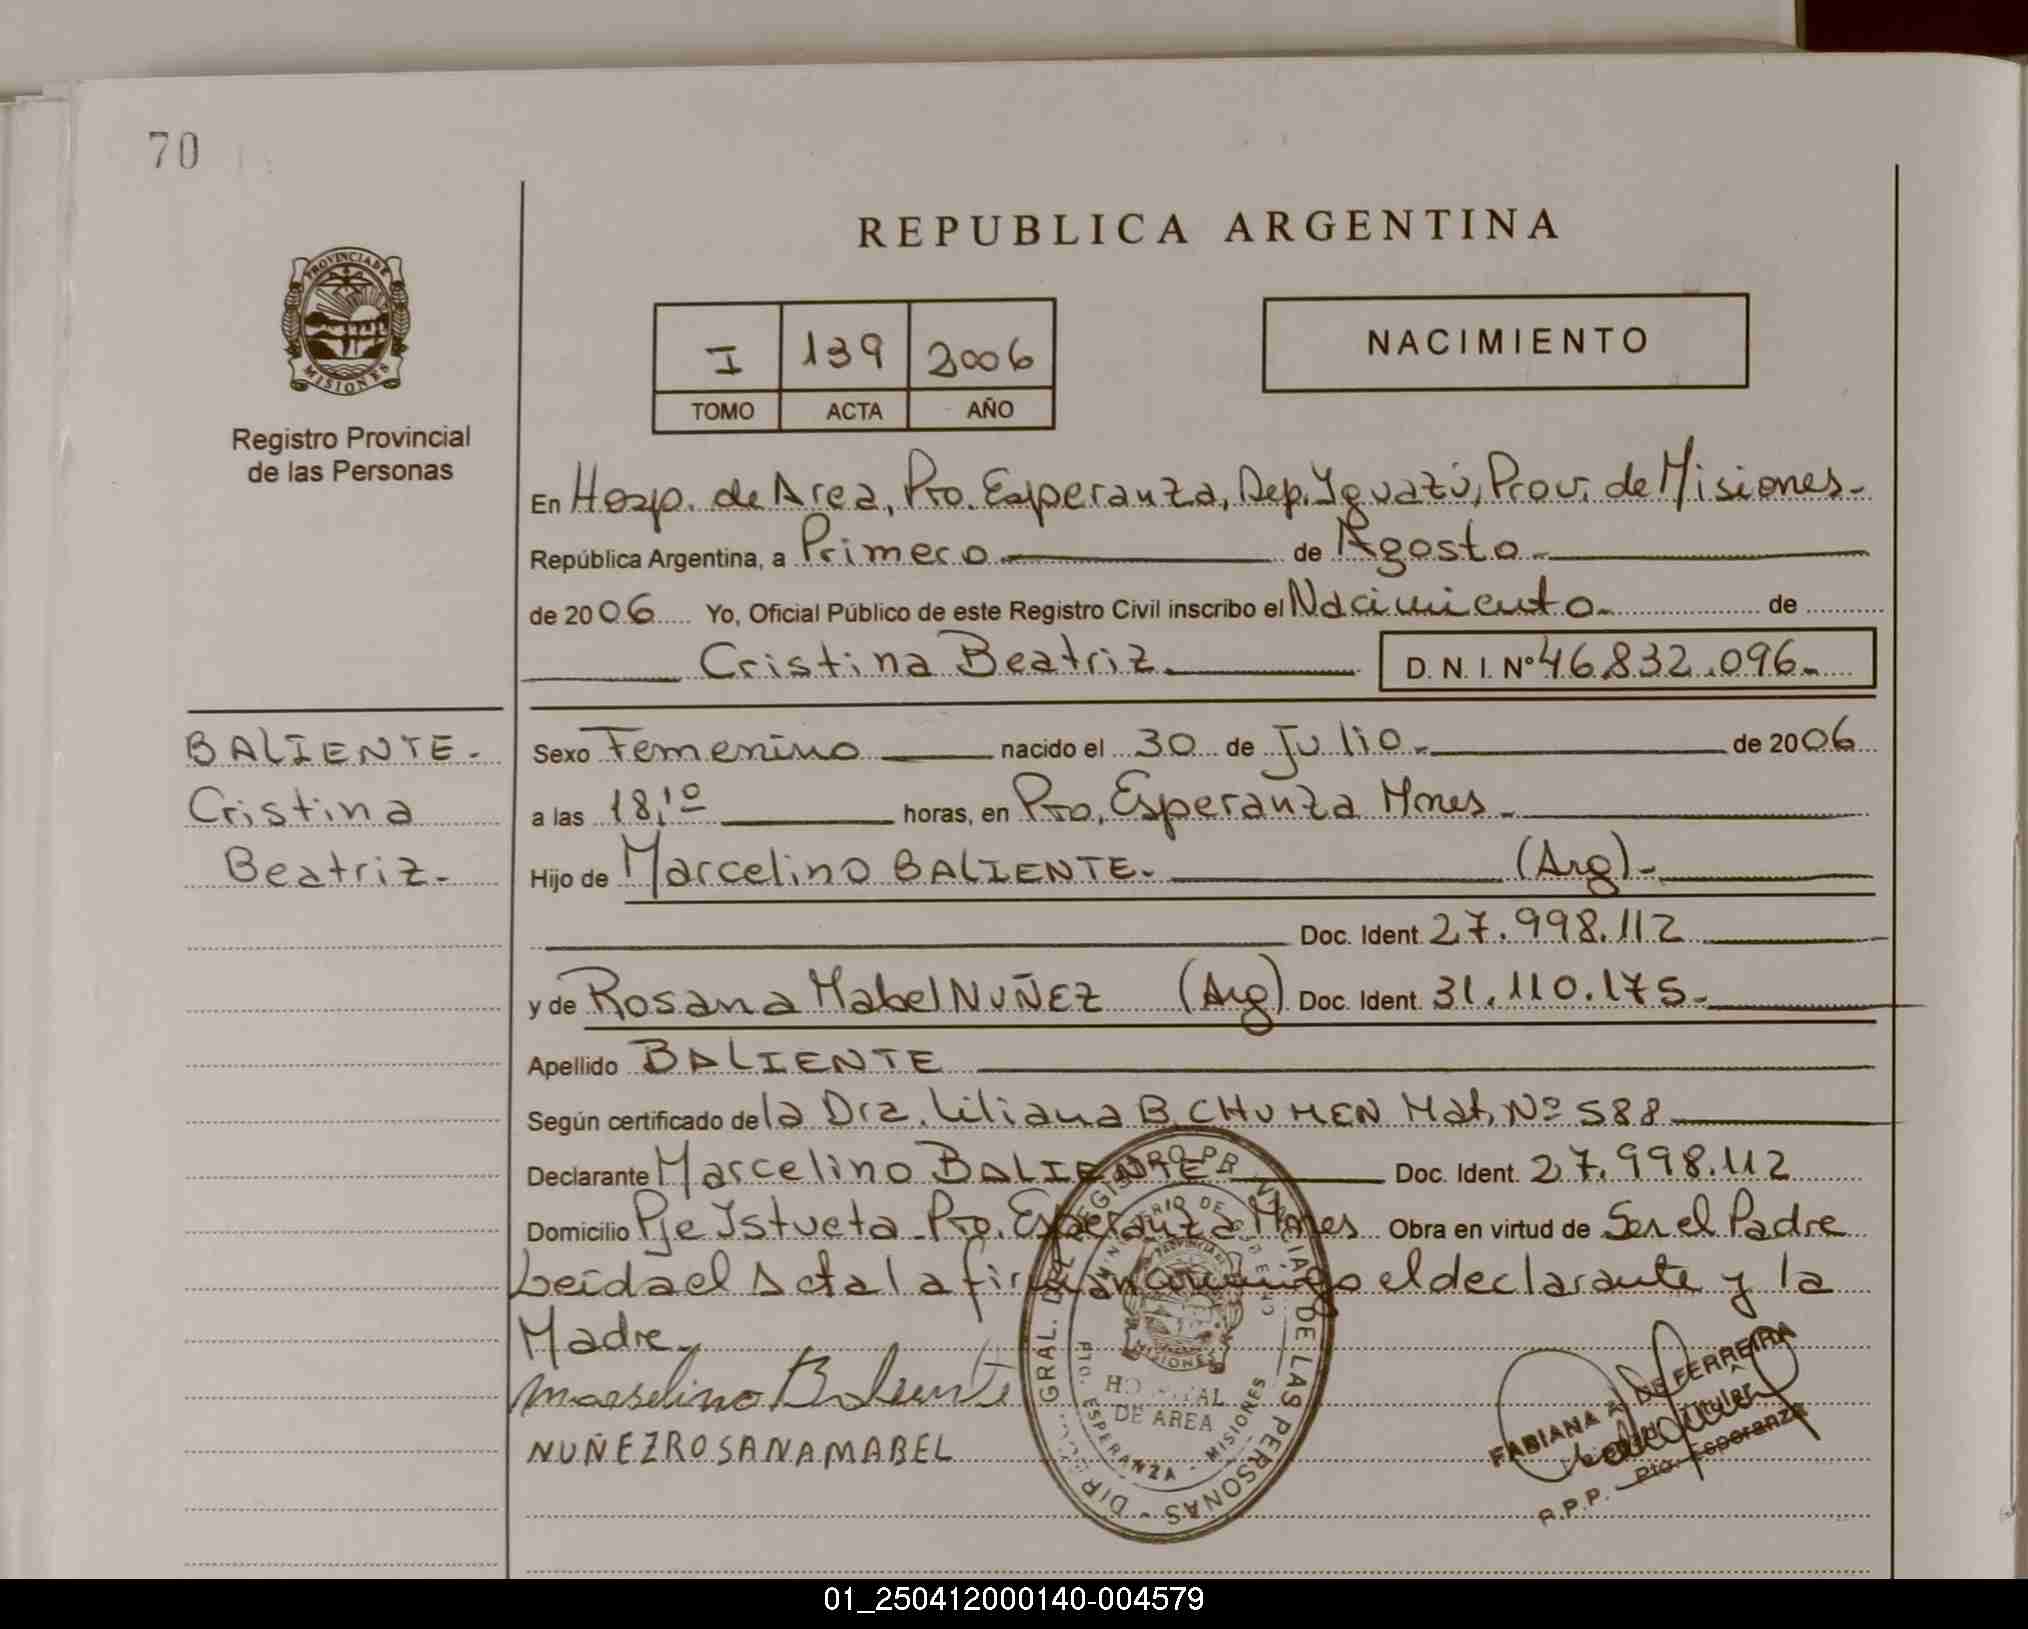 70
REPUBLICA ARGENTINA
PROVINCIA DE
MISIONES
Registro Provincial
de las Personas
I 139 2006
TOMO ACTA AÑO
NACIMIENTO
En Hosp. de Area, Pto. Esperanza, Dep. Iguazú, Prov. de Misiones-
República Argentina, a Primero de Agosto
de 2006 Yo, Oficial Público de este Registro Civil inscribo el Nacimiento de
Cristina Beatriz D. N. I. Nº 46.832.096-
BALIENTE-
Cristina
Beatriz-
Sexo Femenino nacido el 30 de Julio de 2006
a las 18,10 horas, en Pto, Esperanza Mnes
Hijo de Marcelino BALIENTE- (Arg)-
Doc. Ident. 27.998.112
y de Rosana Mabel NUÑEZ (Arg) Doc. Ident. 31.110.175-
Apellido BALIENTE
Según certificado de la Dra. Liliana B. CHUMEN Mat, Nº 588
Declarante Marcelino BALIENTE Doc. Ident. 27.998.112
Domicilio Pje Istueta Pto. Esperanza Mnes Obra en virtud de Ser el Padre
Leida el Acta la firman conmigo el declarante y la
Madre
Marselino Baliente
NUÑEZ ROSANA MABEL
DIR. GRAL. DEL REGISTRO PROVINCIAL DE LAS PERSONAS
MINISTERIO DE GOBIERNO
PROVINCIA DE
MISIONES
HOSPITAL
DE AREA
PTO. ESPERANZA - MISIONES
FABIANA A. DE FERREIRA
Titular
R.P.P. Pto. Esperanza
01_250412000140-004579